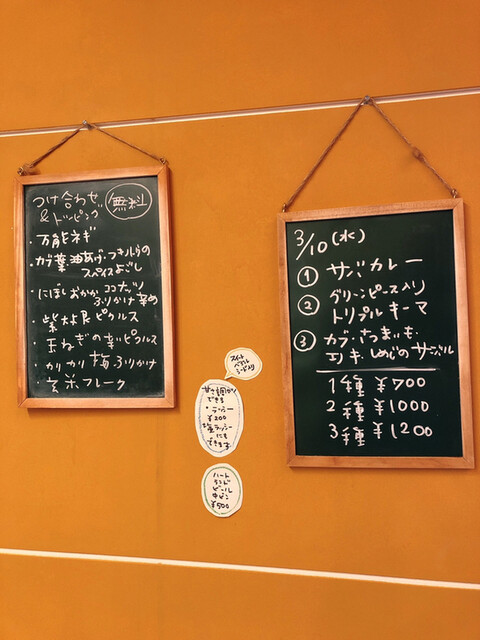 つけ合わせ
&トッピング
無料
・万能ネギ
・カブ葉 油あげ
スパイスよごし
・にぼしおかか ココナッツ
ふりかけ 辛め
・紫大根ピクルス
・玉ねぎの辛いピクルス
・カリカリ梅ふりかけ
・玄米フレーク
スイート
甘さ調節
できます
・ラッシー
¥200
塩ラッシーにも
できます
ハート
ランド
ビール
中ビン
¥500
3/10(水)
① サバカレー
② グリーンピース入り
トリプルキーマ
③ カブ・さつまいも・
エリンギ・しめじのサンバル
1種 ¥700
2種 ¥1000
3種 ¥1200